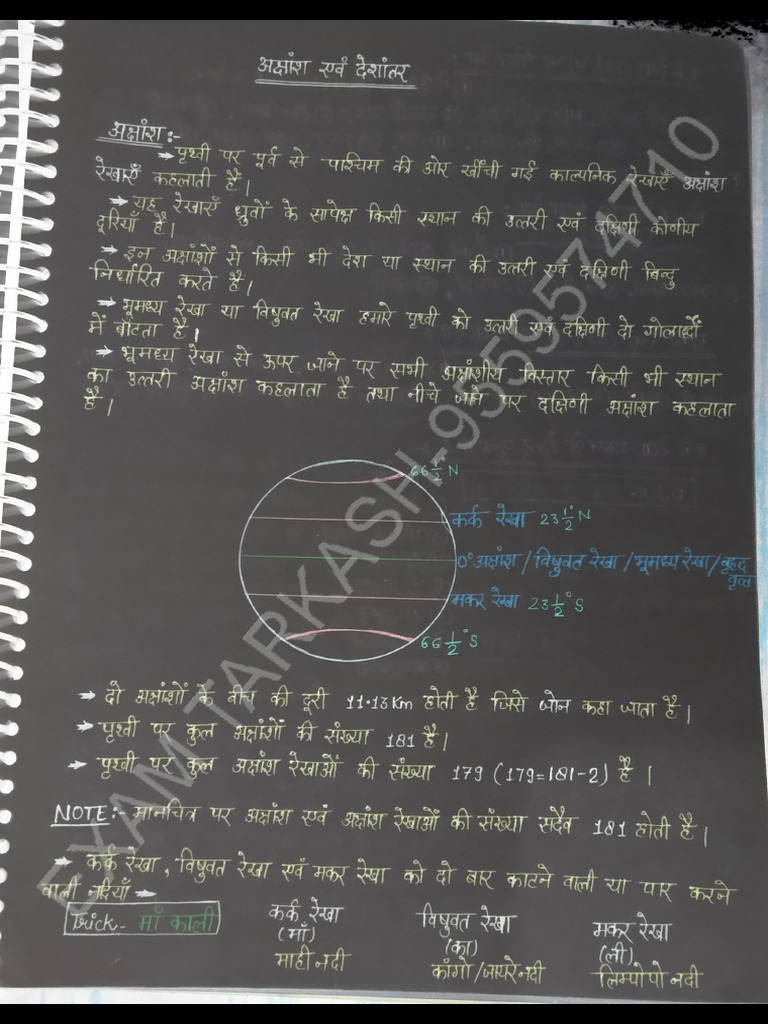 अक्षांश एवं देशांतर
अक्षांश:-
→ पृथ्वी पर पूर्व से पश्चिम की ओर खींची गई काल्पनिक रेखाएँ अक्षांश
रेखाएँ कहलाती है।
→ यह रेखाएँ ध्रुवों के सापेक्ष किसी स्थान की उत्तरी एवं दक्षिणी कोणीय
दूरियाँ है।
→ इन अक्षांशों से किसी भी देश या स्थान की उत्तरी एवं दक्षिणी बिन्दु
निर्धारित करते है।
→ भूमध्य रेखा या विषुवत रेखा हमारे पृथ्वी को उत्तरी एवं दक्षिणी दो गोलार्द्धों
में बाँटता है।
→ भूमध्य रेखा से ऊपर जाने पर सभी अक्षांशीय विस्तार किसी भी स्थान
का उत्तरी अक्षांश कहलाता है तथा नीचे जाने पर दक्षिणी अक्षांश कहलाता
है।
66 1/2° N
कर्क रेखा 23 1/2° N
0° अक्षांश / विषुवत रेखा / भूमध्य रेखा / वृहद
वृत्त
मकर रेखा 23 1/2° S
66 1/2° S
→ दो अक्षांशों के बीच की दूरी 11.13 Km होती है जिसे जोन कहा जाता है।
→ पृथ्वी पर कुल अक्षांशों की संख्या 181 है।
→ पृथ्वी पर कुल अक्षांश रेखाओं की संख्या 179 (179=181-2) है।
NOTE:- मानचित्र पर अक्षांश एवं अक्षांश रेखाओं की संख्या सदैव 181 होती है।
→ कर्क रेखा, विषुवत रेखा एवं मकर रेखा को दो बार काटने वाली या पार करने
वाली नदियाँ →
Trick - माँ काली
कर्क रेखा विषुवत रेखा मकर रेखा
(माँ) (का) (ली)
माही नदी कांगो/जायरे नदी लिम्पोपो नदी
EXAM TARKASH-9559574710